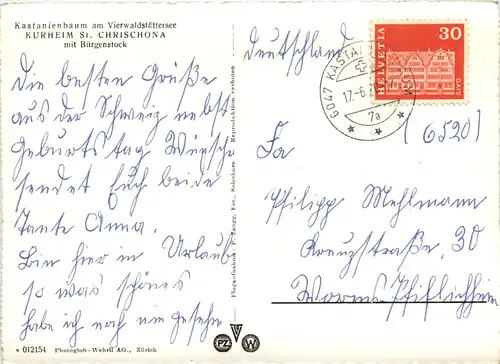 Kastanienbaum am Vierwaldstättersee
KURHEIM St. CHRISCHONA
mit Bürgenstock
Die besten Grüße
aus der Schweiz nebst
Geburtstag Wünsche
sendet Euch beide
Tante Anna.
Bin hier in Urlaub
so was schönes
habe ich noch nie gesehn
* 012154 Photoglob-Wehrli AG., Zürich
Reproduktion verboten
PZ W
Deutschland
30
HELVETIA
GAIS
6047 KASTANIENBAUM
7a
(6520)
Fa
Philipp Mehlmann
Kreuzstraße, 30
Worms-Pfiffligheim